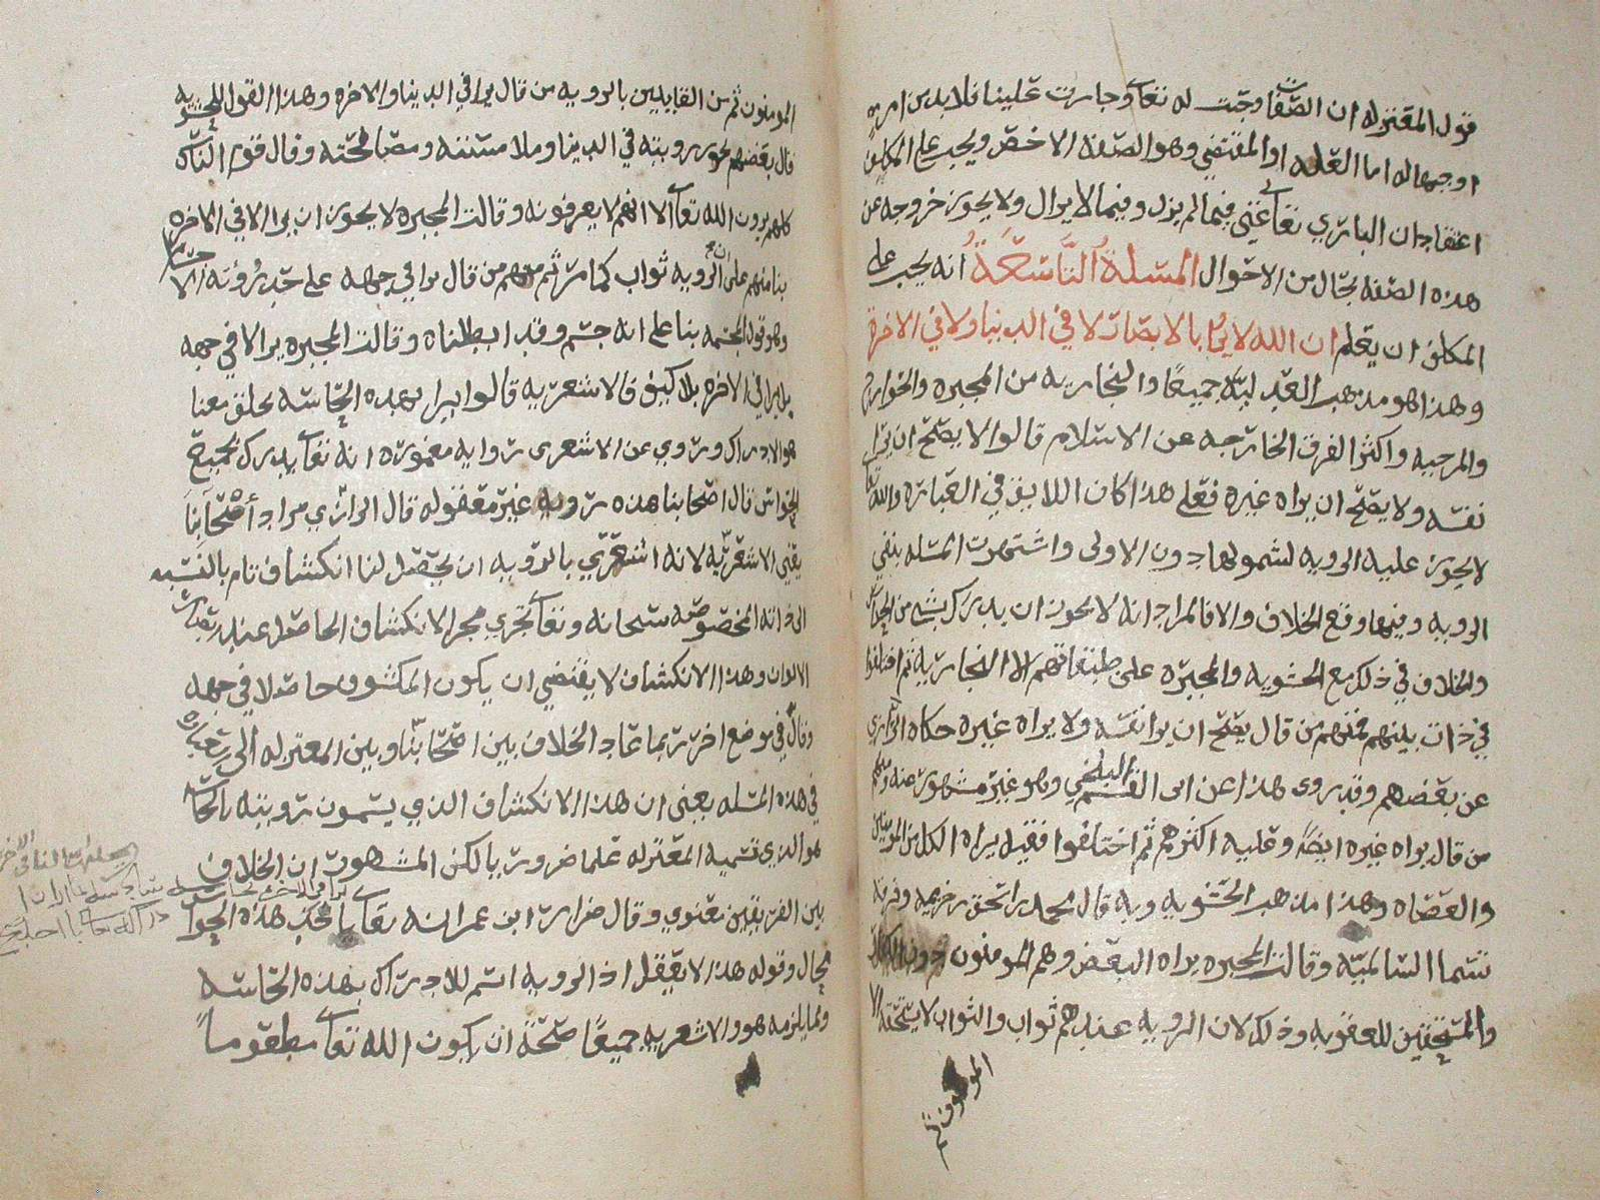 قول المعتزله ان الصفات وجبت له تعالى وجازت علينا فلا بد من امر
اوجبها له اما العله او المقتضي وهو الصفه الاخص ويجب على المكلف
اعتقاد ان الباري تعالى غني فيما لم يزل وفيما لا يزال ولا يجوز خروجه عن
هذه الصفه بحال من الاحوال المسئلة التاسعة انه يجب على
المكلف ان يعلم ان الله لا يرا بالابصار لا في الدنيا ولا في الاخرة
وهذا هو مذهب العدليه جميعًا والنجاريه من المجبره والخوارج
والمرجيه واكثر الفرق الخارجه عن الاسلام قالوا لا يصح ان يرا
نفسه ولا يصح ان يراه غيره فعلى هذا كان اللايق في العباره والله تعالى
لا يجوز عليه الرويه لشمولها دون الاولى واشتهرت المسله بنفي
الرويه وفيها وقع الخلاف والا فالمراد انه لا يجوز ان يدرك بشي من الحواس
والخلاف في ذلك مع الحشويه والمجبره على طبقاتهم الا النجاريه ثم اختلفوا
في ذات بينهم فمنهم من قال يصح ان يرا نفسه ولا يراه غيره حكاه الرازي
عن بعضهم وقد روى هذا عن ابى القسم البلخي وهو غير مشهور عنه ومنهم
من قال يراه غيره ايضًا وعليه اكثرهم ثم اختلفوا فقيل يراه الكل من المومنين
والعصاه وهذا مذهب الحشويه وبه قال محمد بن اسحق بن خزيمه وفرقه
تسما السالميه وقالت المجبره يراه البعض وهم المومنون دون
والمستحقين للعقوبه وذلك لان الرويه عندهم ثواب والثواب لا يستحقه الا
المومنون ثم
المومنون ثم من القايلين بالرويه من قال يرا في الدنيا والاخره وهذا القول للحشويه
قال بعضهم يجوز رويته في الدنيا وملامسته ومصافحته وقال قوم الناس
كلهم يرون الله تعالى الا انهم لا يعرفونه وقالت المجبره لا يجوز ان يرا الا في الاخره
بنا منهم على ان الرويه ثواب كما مر ثم منهم من قال يرا في جهه على حد رؤيته
وهو قول المجسمه بنا على انه جسم وقد ابطلناه وقالت المجبره يرا لا في جهه
بل يرا في الاخره بلا كيف فالاشعريه قالوا يرا بهذه الحاسه بخلق معنا
هو الادراك وروي عن الاشعرى روايه مغموره انه تعالى يدرك بجميع
الحواس قال اصحابنا هذه رويه غير معقوله قال الرازي مراد أصحابنا
يعني الاشعريه لانه اشعري بالرويه ان يحصل لنا انكشاف تام بالنسبه
الى ذاته المخصوصه سبحانه وتعالى تجري مجرا الانكشاف الحاصل عند
الالوان وهذا الانكشاف لا يقتضي ان يكون المكشوف حاصلا في جهه
وقال في موضع اخر ربما عاد الخلاف بين اصحابنا وبين المعتزله الى
في هذه المسله يعني ان هذا الانكشاف الذي يسمون رويته بالحاسه
هو الذي تسميه المعتزله علما ضروريا لكن المشهور ان الخلاف
بين الفريقين معنوي وقال ضرار ابن عمر انه تعالى هذه الحواس
محال وقوله هذا لا يعقل اذ الرويه اسم للادراك بهذه الحاسه
ومما يلزمه هو والاشعريه جميعًا صحّة ان يكون الله تعالى مطعومًا